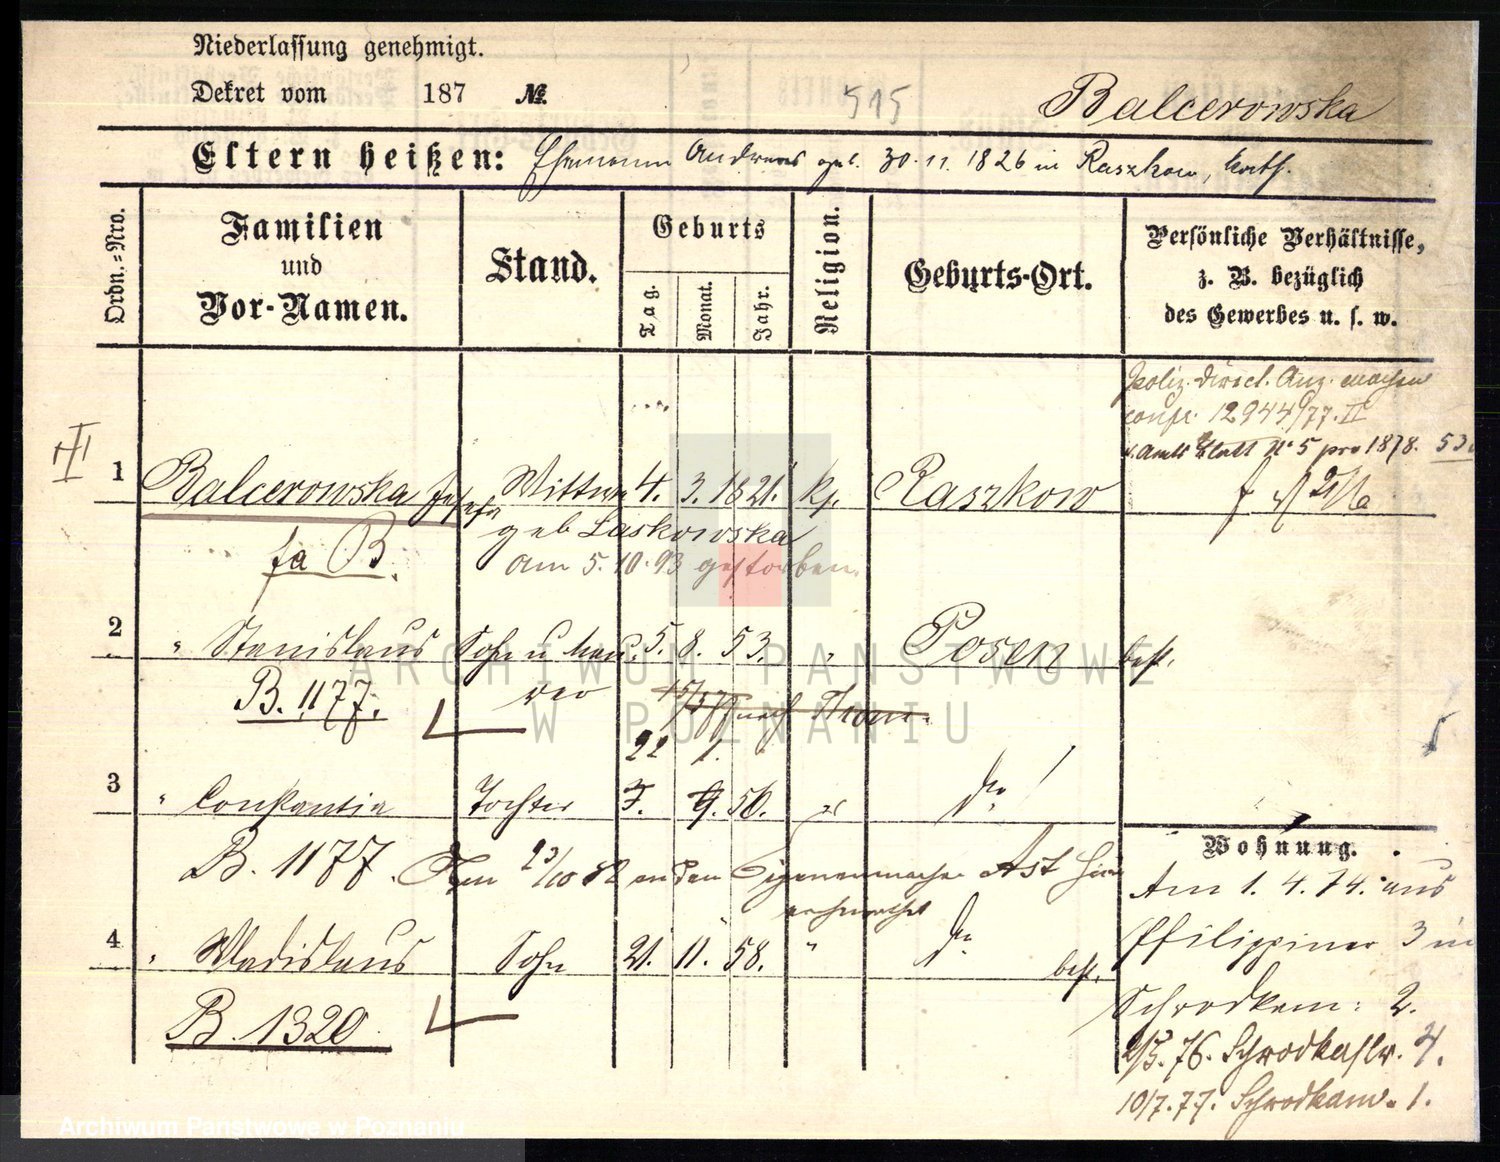 Niederlassung genehmigt.
Dekret vom 187 №
515
Balcerowska
Eltern heißen: Ehemann Andreas geb. 30. 11. 1826 in Raszkow, kath.
Ordn.=Nro.
Familien und Vor-Namen.
Stand.
Geburts
Tag.
Monat.
Jahr.
Religion.
Geburts-Ort.
Persönliche Verhältnisse, z. B. bezüglich des Gewerbes u. s. w.
12944/77. II
Amts Blatt No 5 pro 1878.
III
1 Balcerowska Josefa Wittwe 4. 3. 1821. k. Raszkow
geb Laskowska
fa B.
am 5. 10. 93 gestorben.
2 " Stanislaus Sohn u 5. 8. 53. " Posen
B. 1177.
22 1.
3 " Constantia Tochter 7. 9. 56. do
B. 1177. 23/10 82 an den Cigarrenmacher Ast
4 " Wladislaus Sohn 21. 11. 58. " do
B. 1320
Wohnung.
Am 1. 4. 74. aus
Philippiner 3 in
Schrodkam: 2.
2/5. 76. Schrodkastr. 4.
10/7. 77. Schrodkam. 1.
ARCHIWUM PAŃSTWOWE
W POZNANIU
Archiwum Państwowe w Poznaniu